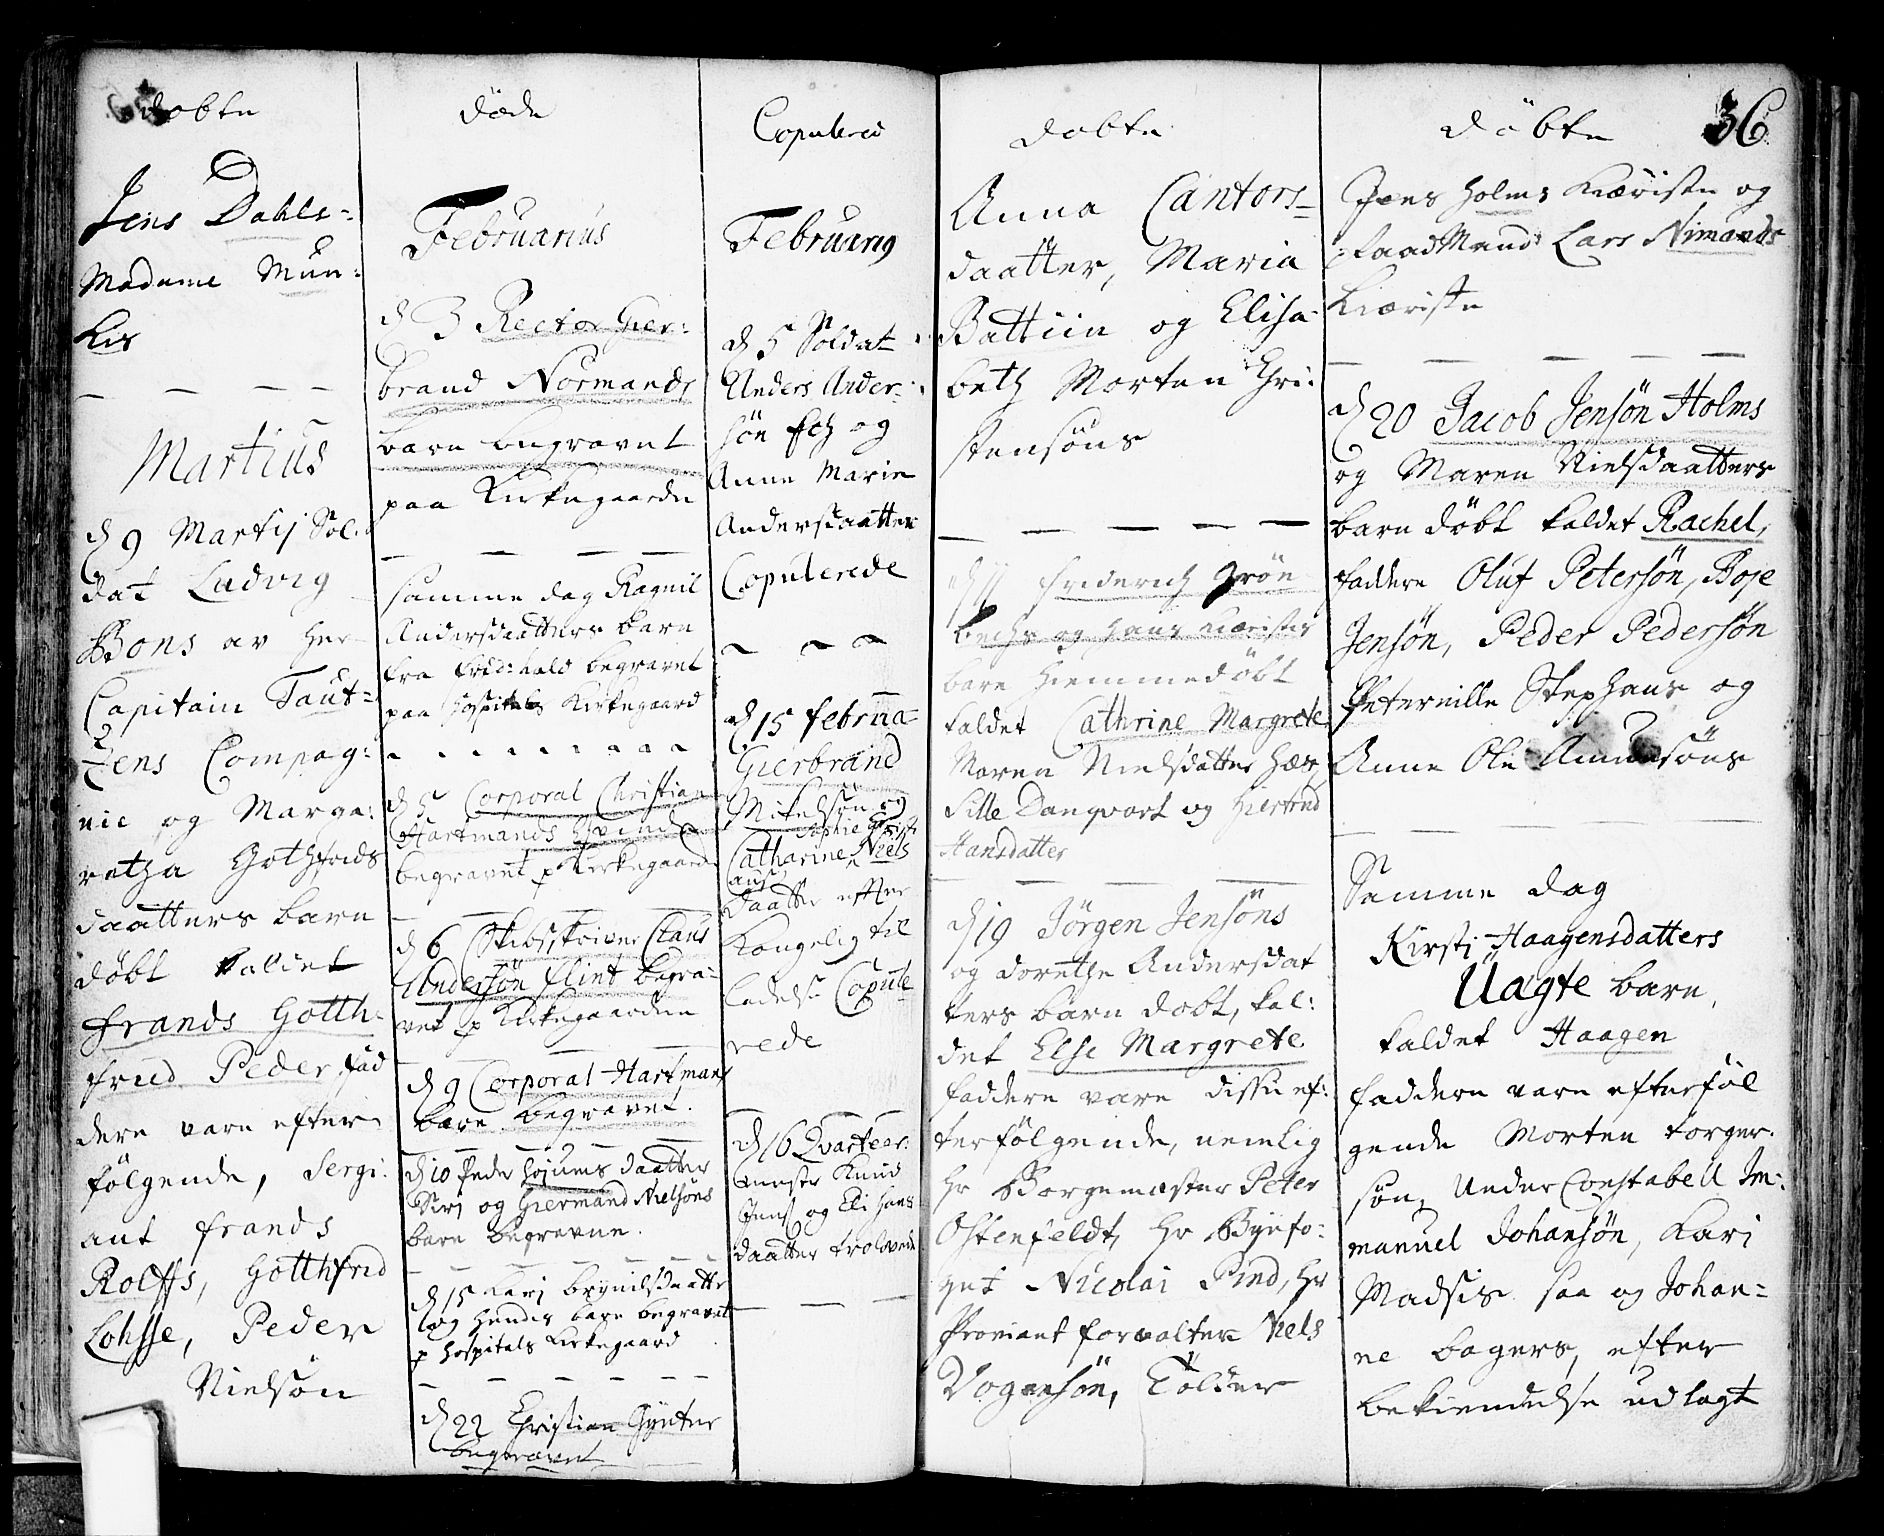 döbte
Jens Dahls-
Madame Mun-
kis
Martius
d 9 Martij Sol-
dat Ludvig
Bons av Her
Capitain Taut-
zens Compag-
nie og Marga-
retha Gothfrids
daatters barn
döbt kaldet
frands Gotth-
frid Peder, fad
dere vare efter
følgende, Sergi-
ant frands
Rolffs, Gotthfrid
Lohsse, Peder
Nielsøn
döde
Februarius
d 3 Rector Gier-
brand Normands
barn begravet
paa Kirkegaarden
samme dag Ragnil
Andersdaatters barn
fra frid: hald begravet
paa Hospitals Kirkegaard
d 5 Corporal Christian
Hartmands Qvinde
begravet p Kirkegaarden
d 6 Skibsskriver Claus
Andersøn flint begra-
vet p Kirkegaarden
d 9 Corporal Hartmans
barn begravet.
d 10 Peder Højums daatter
Siri og Giermand Nielsøns
barn begravne.
d 15 Kari Brynilsdaatter
og Hendis barn begravet
p Hospitals Kirkegaard
d 22 Christian Gynter
begravet
Copulered
Februarius
d 5 Soldat
Anders Ander-
søn fch og
Anne Marie
Andersdaatter
Copulerede
d 15 februa-
Gierbrand
Mikelsøn og
Sophie
Catharine Niels
daatter effter
Kongelig til
ladelse Copule
rede
d 16 Qvarteer-
mester Knud
Jens og Eli Hans
daatter trolovede
döbte
Anna Cantors-
daatter, Maria
Battiin og Elisa-
beth Morten Chri-
stensøns
d 11 friderich Grön
bechs og hans kieristes
barn hiemmedöbt
kaldet Cathrine Margrete
Maren Nielsdatter Hæs
Sille Danqvart og Giertrud
Hansdatter
d 19 Jørgen Jensøns
og Dorethe Andersdat
ters barn döbt, kal-
det Else Margrete
faddere vare disse ef-
terfölgende, nemlig
Hr Borgemæster Peter
Ostenfeldt, Hr Byefo-
get Nicolai Pind, Hr
Proviant forvalter Niels
Vogensøn, Tolder
döbte
36
Jens Holms Kieriste og
Raadmand Lars Nimands
Kieriste
d 20 Jacob Jensøn Holms
og Maren Nielsdaatters
barn döbt kaldet Rachel,
faddere Oluf Petersøn, Boje
Jensøn, Peder Pedersøn
Peternille Stephans og
Anne Ole Amundsøns
Samme dag
Kirsti Haagensdatters
Uægte barn,
kaldet Haagen
faddere vare efterföl
gende Morten torger-
søn, Under Constabell Im-
manuel Johansøn, Kari
Madsis saa og Johan-
ne bagers, efter
bekiendelse udlagt